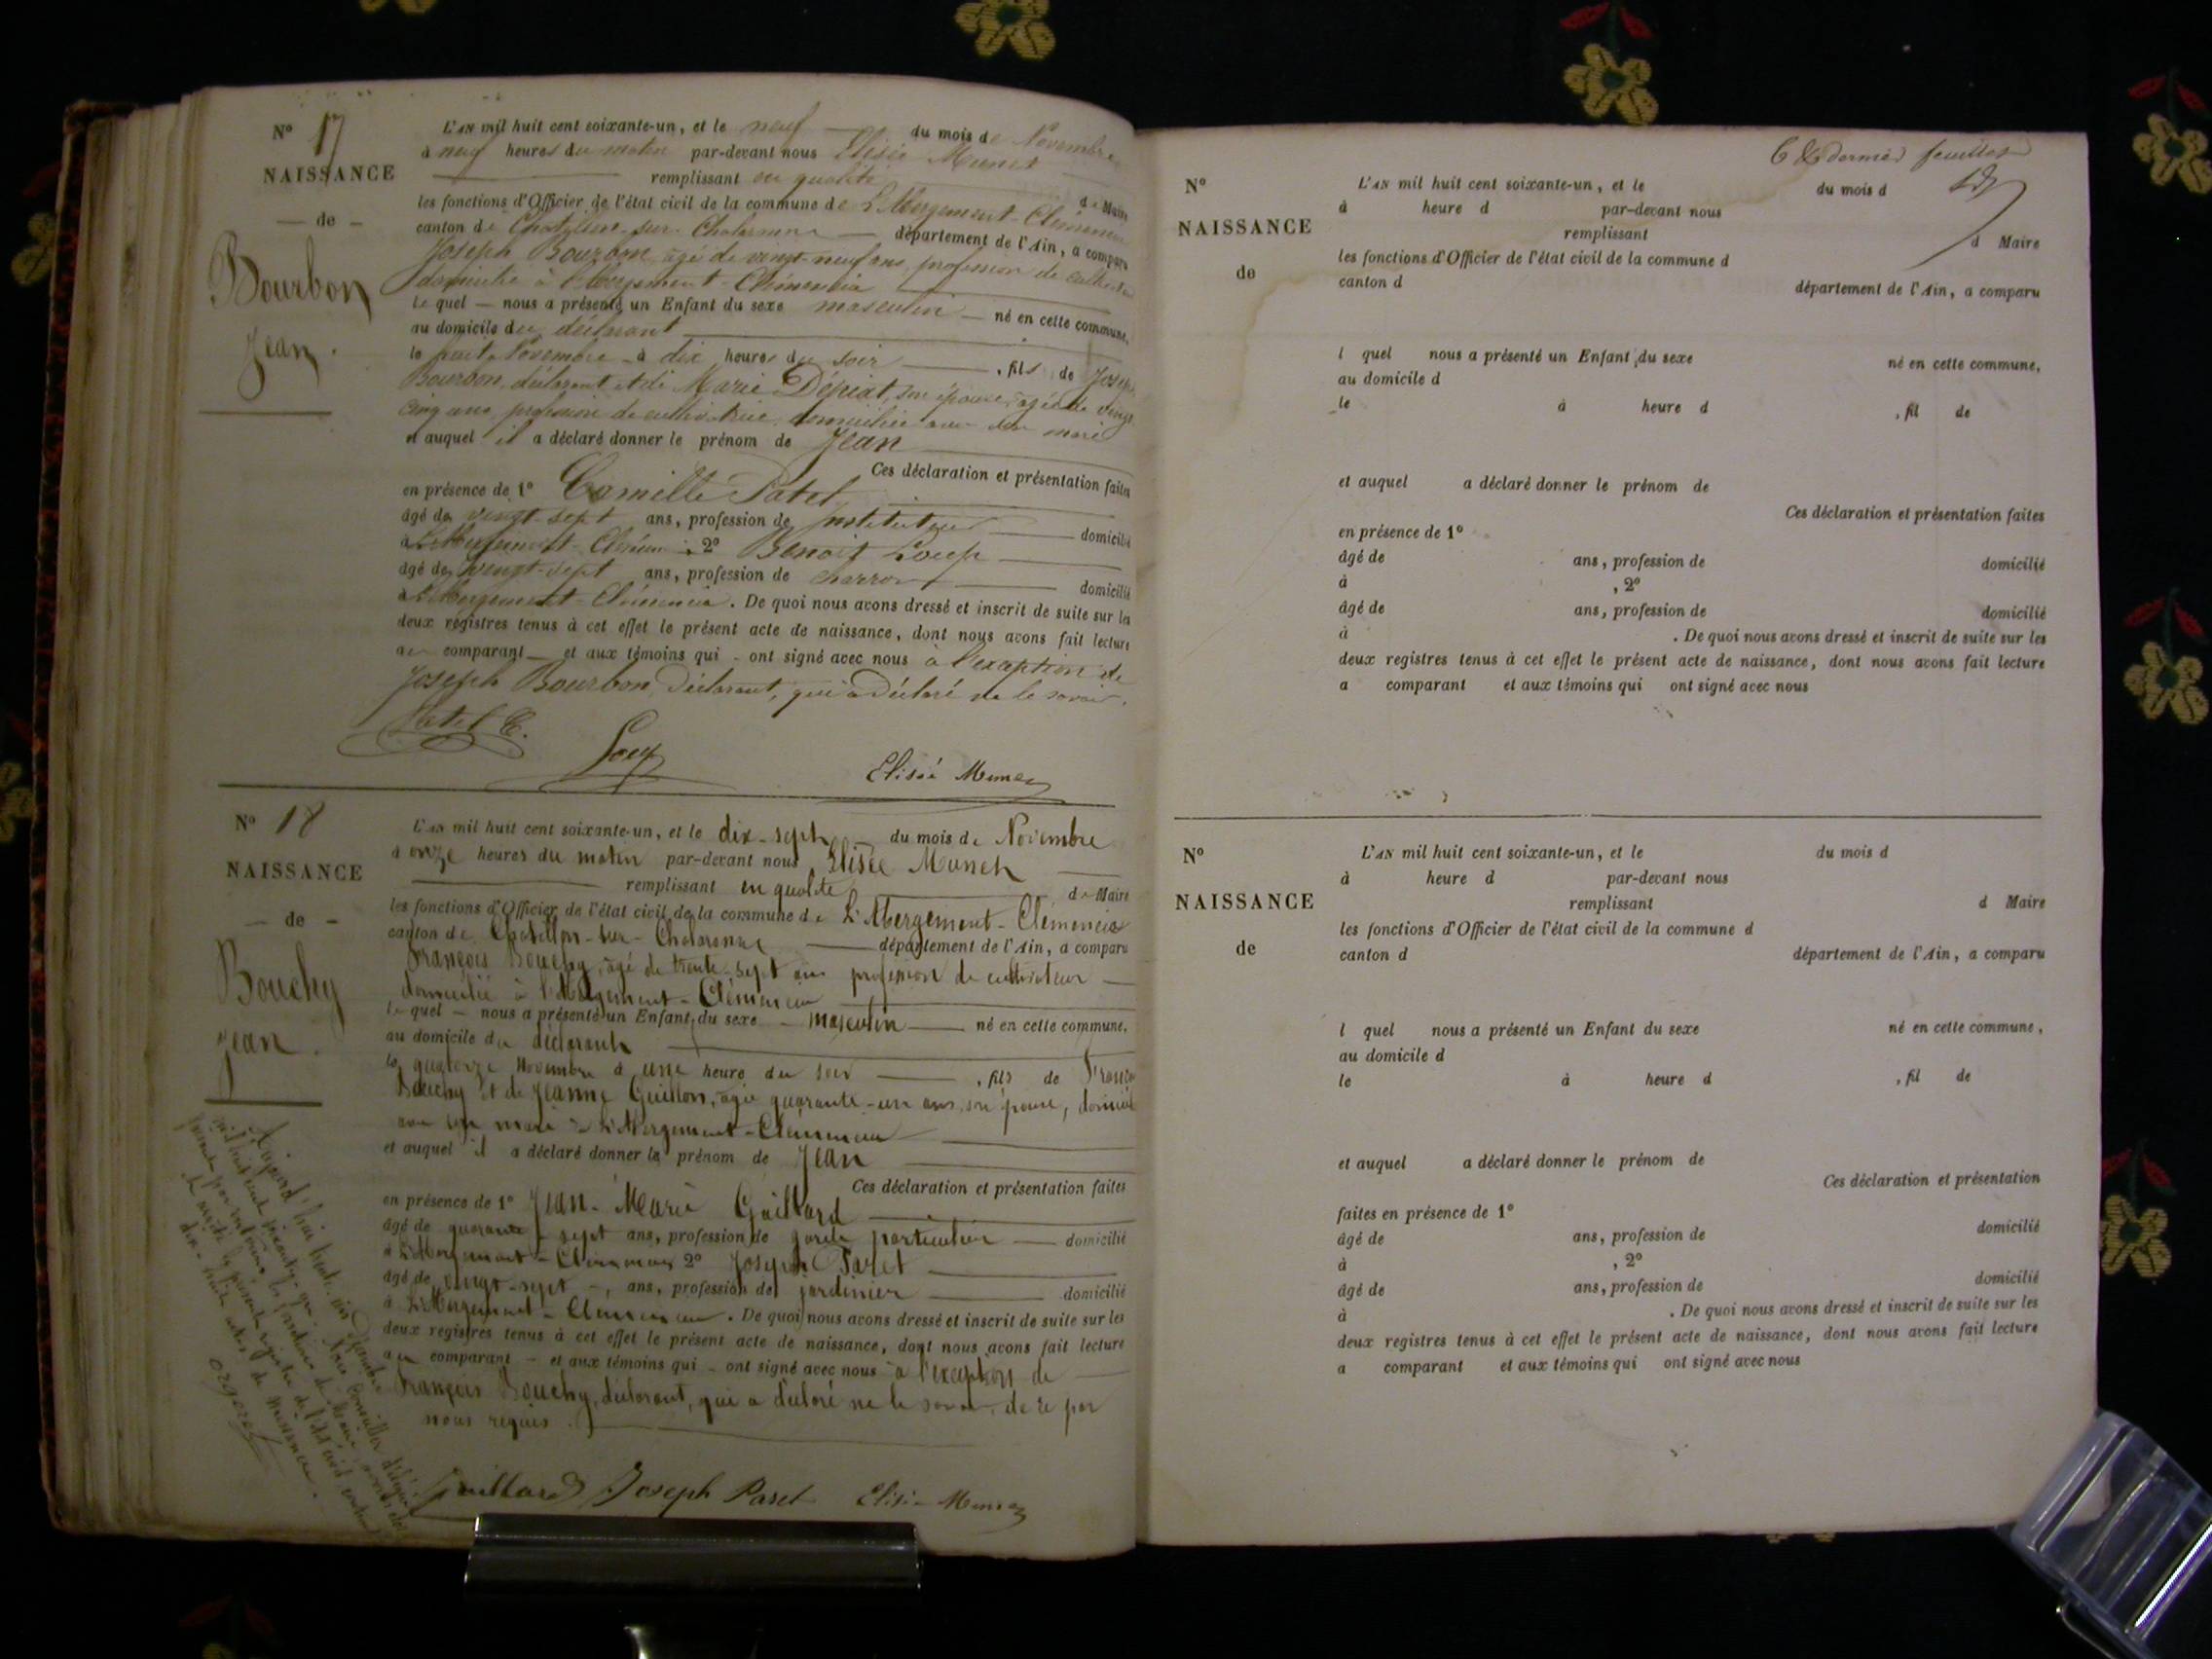 N° 17
NAISSANCE
— de —
Bourbon
Jean.
L'AN mil huit cent soixante-un, et le neuf du mois de Novembre
à neuf heures du matin par-devant nous Elisée Munet
remplissant en qualité de Maire
les fonctions d'Officier de l'état civil de la commune de L'Abergement-Clémencia
canton de Chatillon-sur-Chalaronne département de l'Ain, a comparu
Joseph Bourbon, âgé de vingt-neuf ans, profession de
domicilié à l'Abergement-Clémencia
le quel — nous a présenté un Enfant du sexe masculin — né en cette commune,
au domicile du déclarant
le huit Novembre à dix heures du soir , fils de Joseph
Bourbon, déclarant et de Marie Dépiat, son épouse, âgée de vingt
cinq ans, profession de cultivatrice, domiciliée avec son mari
et auquel il a déclaré donner le prénom de Jean
Ces déclaration et présentation faites
en présence de 1° Camille Patel
âgé de vingt-sept ans, profession de Instituteur domicilié
à L'Abergement-Clémencia, 2° Benoit Loup
âgé de vingt-sept ans, profession de charron domicilié
à L'Abergement-Clémencia. De quoi nous avons dressé et inscrit de suite sur les
deux registres tenus à cet effet le présent acte de naissance, dont nous avons fait lecture
au comparant — et aux témoins qui - ont signé avec nous à l'exception de
Joseph Bourbon, déclarant, qui a déclaré ne le savoir.
Patel C. Loup Elisée Munet
N° 18
NAISSANCE
— de —
Bouchy
Jean.
L'AN mil huit cent soixante-un, et le dix-sept du mois de Novembre
à onze heures du matin par-devant nous Elisée Munet
remplissant en qualité de Maire
les fonctions d'Officier de l'état civil de la commune de L'Abergement-Clémencia
canton de Chatillon-sur-Chalaronne département de l'Ain, a comparu
François Bouchy, âgé de trente-sept ans profession de cultivateur
domicilié à l'Abergement-Clémencia
le quel — nous a présenté un Enfant du sexe masculin né en cette commune,
au domicile du déclarant
le quatorze Novembre à une heure du soir , fils de François
Bouchy et de Jeanne Guillon, âgée quarante-un ans, son épouse, domiciliée
avec son mari à L'Abergement-Clémencia
et auquel il a déclaré donner le prénom de Jean
Ces déclaration et présentation faites
en présence de 1° Jean-Marie Gaillard
âgé de quarante-sept ans, profession de garde particulier domicilié
à L'Abergement-Clémencia, 2° Joseph Paret
âgé de vingt-sept -, ans, profession de jardinier domicilié
à L'Abergement-Clémencia. De quoi nous avons dressé et inscrit de suite sur les
deux registres tenus à cet effet le présent acte de naissance, dont nous avons fait lecture
au comparant — et aux témoins qui - ont signé avec nous à l'exception de
François Bouchy, déclarant, qui a déclaré ne le savoir, de ce par
nous requis.
Gaillard Joseph Paret Elisée Munet
dernier feuillet
N°
NAISSANCE
de
L'AN mil huit cent soixante-un, et le du mois d
à heure d par-devant nous
remplissant d Maire
les fonctions d'Officier de l'état civil de la commune d
canton d département de l'Ain, a comparu
l quel nous a présenté un Enfant du sexe né en cette commune,
au domicile d
le à heure d , fil de
et auquel a déclaré donner le prénom de
Ces déclaration et présentation faites
en présence de 1°
âgé de ans, profession de domicilié
à , 2°
âgé de ans, profession de domicilié
à . De quoi nous avons dressé et inscrit de suite sur les
deux registres tenus à cet effet le présent acte de naissance, dont nous avons fait lecture
a comparant et aux témoins qui ont signé avec nous
N°
NAISSANCE
de
L'AN mil huit cent soixante-un, et le du mois d
à heure d par-devant nous
remplissant d Maire
les fonctions d'Officier de l'état civil de la commune d
canton d département de l'Ain, a comparu
l quel nous a présenté un Enfant du sexe né en cette commune,
au domicile d
le à heure d , fil de
et auquel a déclaré donner le prénom de
Ces déclaration et présentation
faites en présence de 1° domicilié
âgé de ans, profession de
à , 2°
âgé de ans, profession de domicilié
à . De quoi nous avons dressé et inscrit de suite sur les
deux registres tenus à cet effet le présent acte de naissance, dont nous avons fait lecture
a comparant et aux témoins qui ont signé avec nous